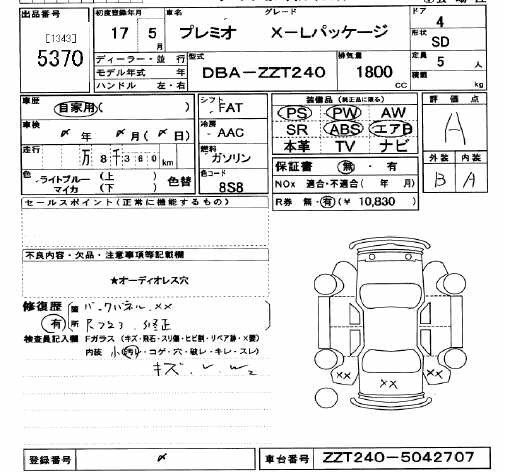 出品番号 初度登録年月 車名 グレード ドア 4
[1343] 17 5月 プレミオ X-Lパッケージ 形状 SD
5370 ディーラー・並行 型式 排気量 定員 5 人
モデル年式 年 DBA-ZZT240 1800 cc 積載 kg
ハンドル 左・右
車歴 自家用( ) シフト FAT 装備品 (純正品に限る) 評価点
PS PW AW
車検 〃 年 〃 月(〃 日) 冷房 AAC SR ABS エアB A
本革 TV ナビ
走行 万 8千360 km 燃料 ガソリン 保証書 無・有 外装 内装
色 ライトブルー (上 ) 色替 色コード NOx 適合・不適合( 年 月) B A
マイカ (下 ) 8S8 R券 無・有(¥ 10,830)
セールスポイント(正常に機能するもの)
不良内容・欠品・注意事項等記載欄
★オーディオレス穴
修復歴 箇 バックパネル XX
有 所 修正
検査員記入欄 Fガラス (キズ・飛石・スリ傷・ヒビ割・リペア跡・X要)
内装 小(汚・コゲ・穴・破レ・キレ・スレ)
キズ
XX XX XX
登録番号 〃 車台番号 ZZT240-5042707